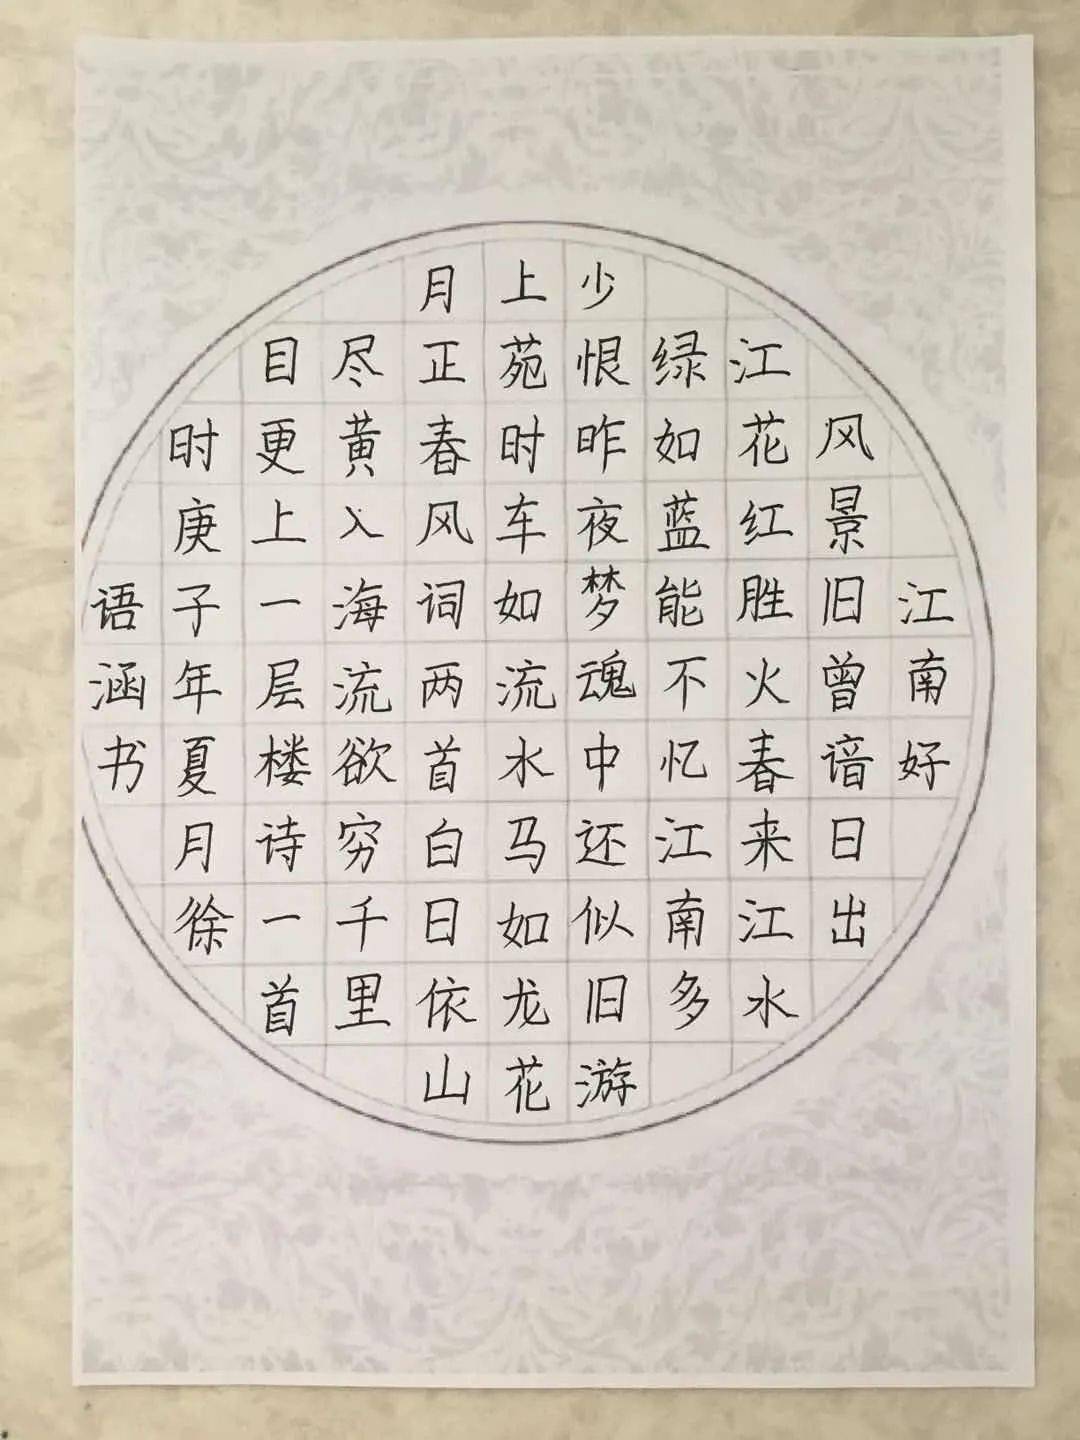 江南好
风景旧曾谙日出
江花红胜火春来江水
绿如蓝能不忆江南多
少恨昨夜梦魂中还似旧游
上苑时车如流水马如龙花
月正春风词两首白日依山
尽黄入海流欲穷千里
目更上一层楼诗一首
时庚子年夏月徐
语涵书